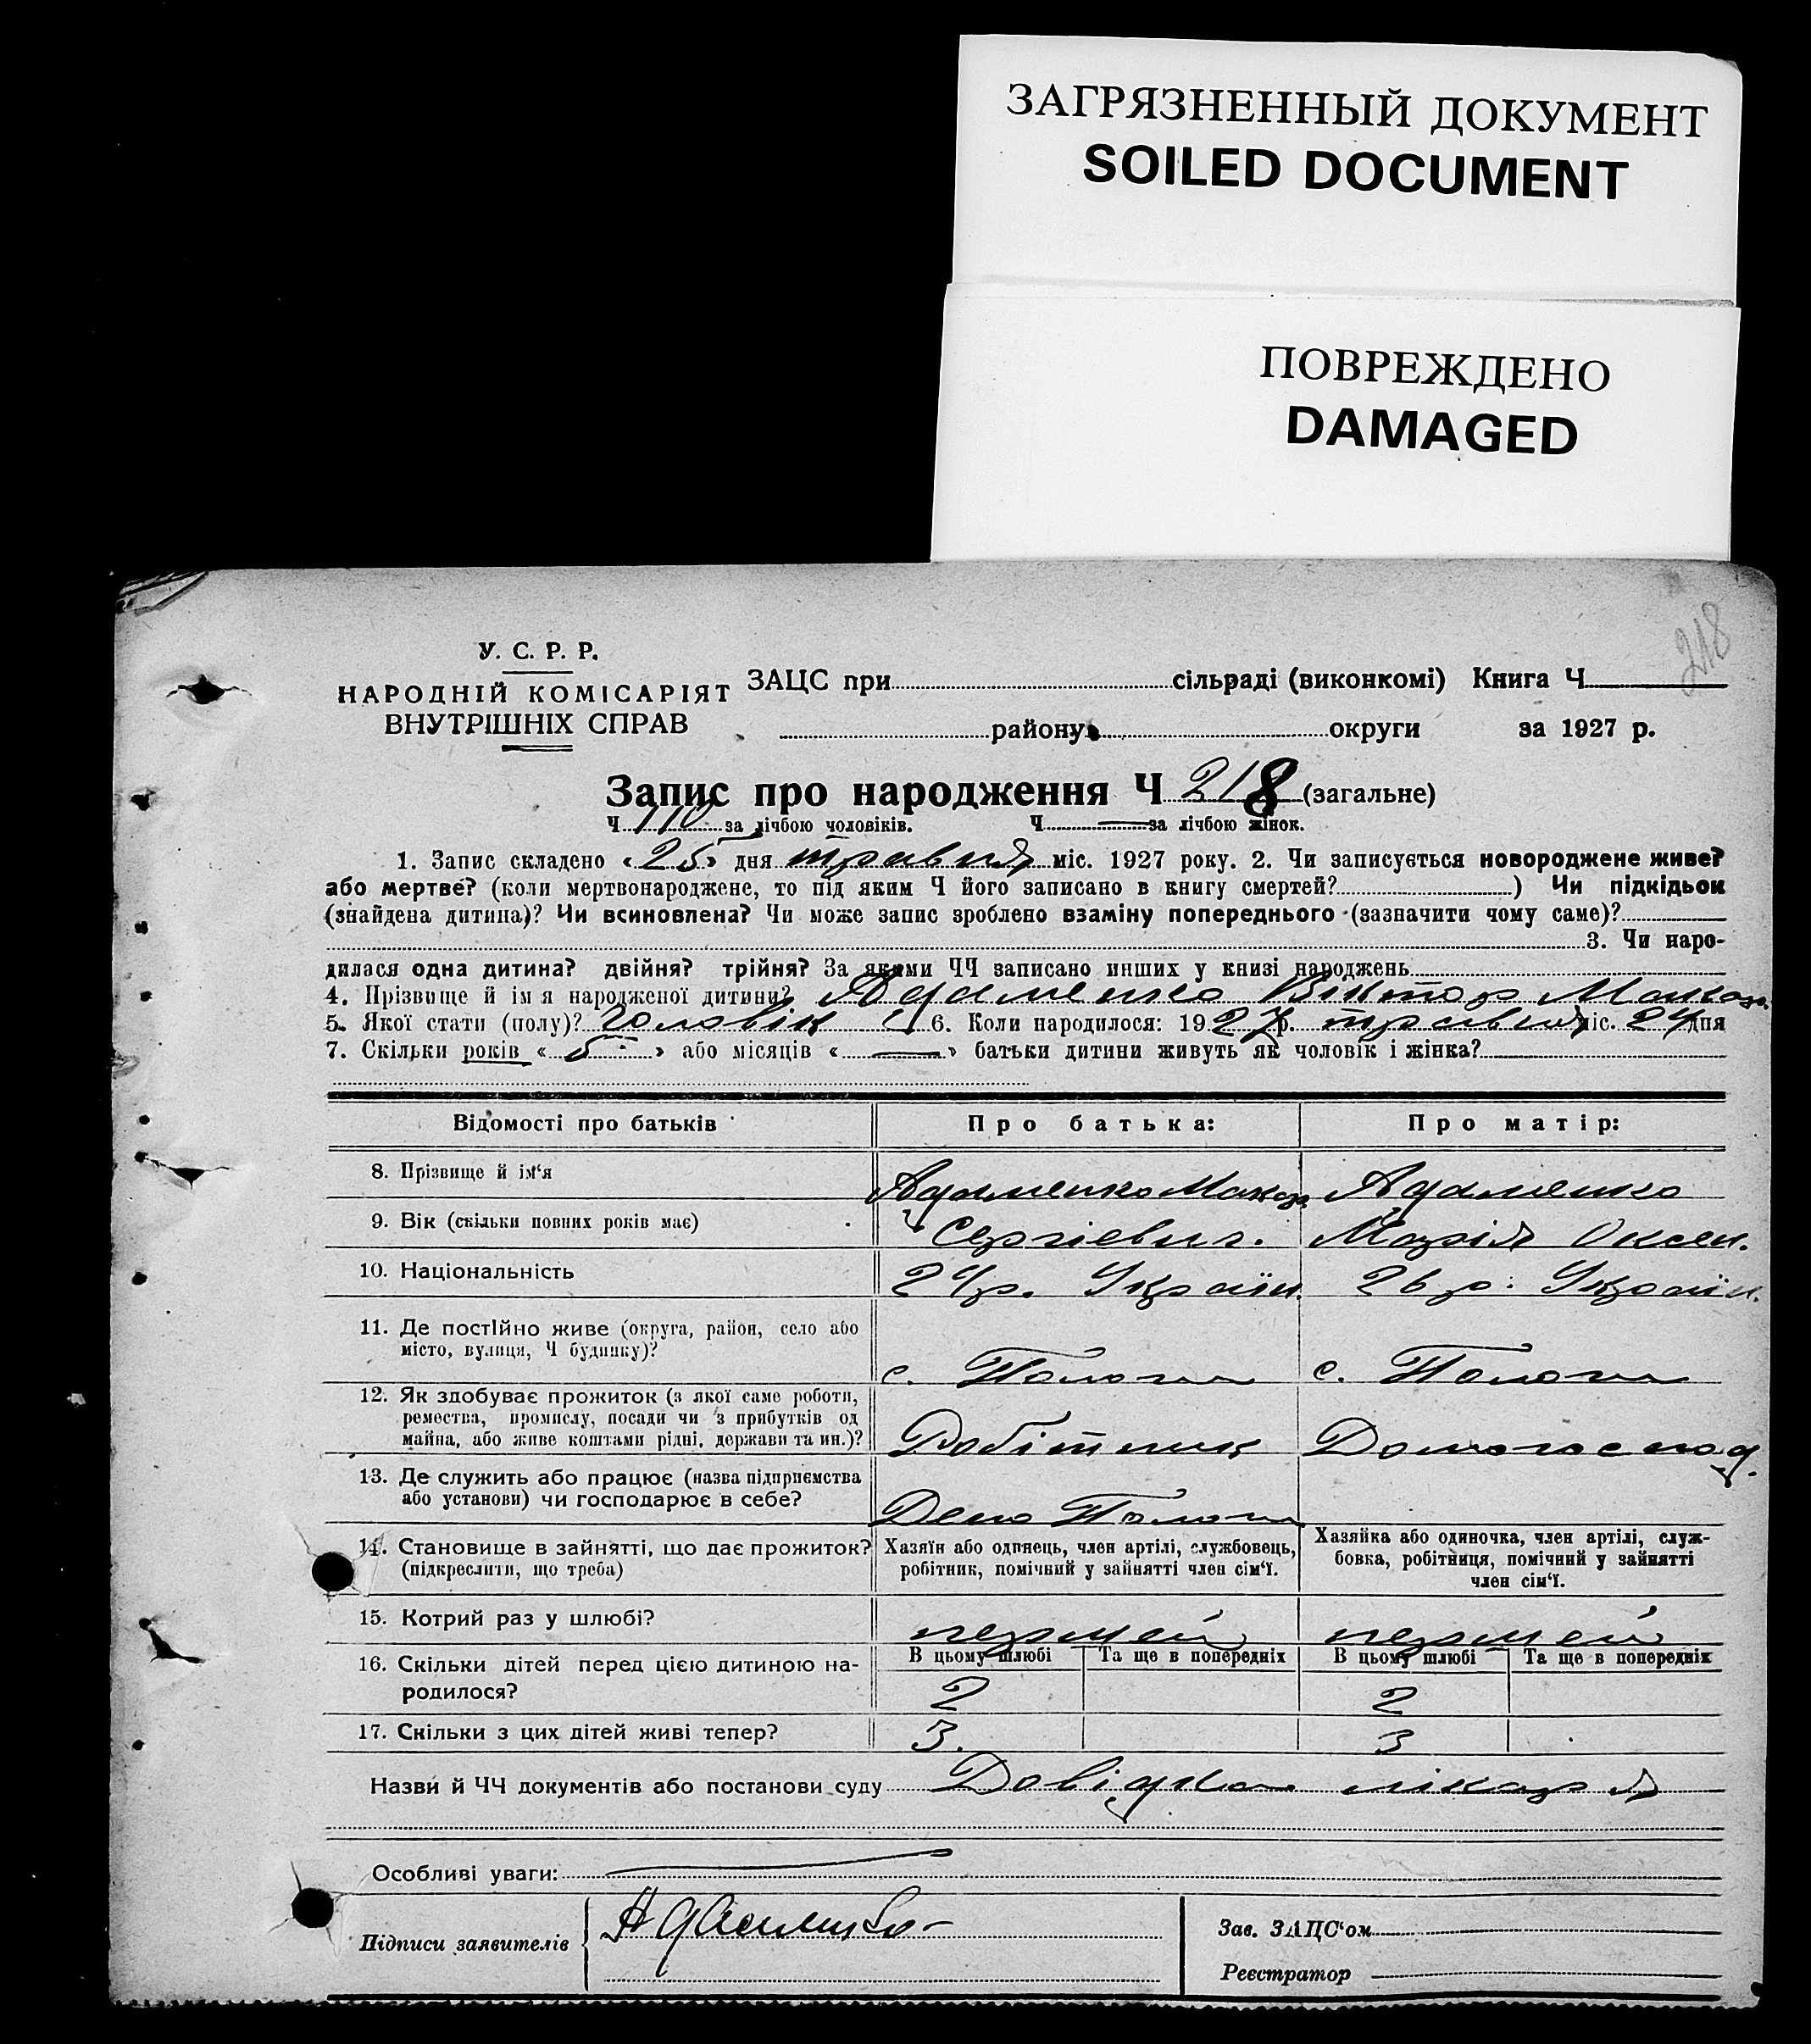 ЗАГРЯЗНЕННЫЙ ДОКУМЕНТ
SOILED DOCUMENT
ПОВРЕЖДЕНО
DAMAGED
218
У. С. Р. Р.
НАРОДНІЙ КОМІСАРІЯТ
ВНУТРІШНІХ СПРАВ
ЗАЦС при сільраді (виконкомі) Книга Ч
району округи за 1927 р.
Запис про народження Ч 218 (загальне)
Ч 110 за лічбою чоловіків. Ч — за лічбою жінок.
1. Запис складено «25» дня травня міс. 1927 року. 2. Чи записується новороджене живе?
або мертве? (коли мертвонароджене, то під яким Ч його записано в книгу смертей? ) Чи підкідьок
(знайдена дитина)? Чи всиновлена? Чи може запис зроблено взаміну попереднього (зазначити чому саме)?
3. Чи наро-
дилася одна дитина? двійня? трійня? За якими ЧЧ записано инших у книзі народжень
4. Прізвище й ім я народженої дитини? Адаменко Віктор Макар.
5. Якої стати (полу)? Чоловік 6. Коли народилося: 1927 р. травня міс. 24 дня
7. Скільки років «5» або місяців «—» батьки дитини живуть як чоловік і жінка?
Відомості про батьків Про батька: Про матір:
8. Прізвище й ім'я Адаменко Макар Адаменко
9. Вік (скільки повних років має) Сергієвич. Марія Оксен.
10. Національність 24 р. Україн. 26 р. Україн.
11. Де постійно живе (округа, район, село або
місто, вулиця, Ч будинку)? с. Пологи с. Пологи
12. Як здобуває прожиток (з якої саме роботи,
ремества, промислу, посади чи з прибутків од
майна, або живе коштами рідні, держави та ин.)? Робітник Домогоспод.
13. Де служить або працює (назва підприємства
або установи) чи господарює в себе? Депо Пологи
14. Становище в зайнятті, що дає прожиток?
(підкреслити, що треба)
Хазяїн або одинець, член артілі, службовець,
робітник, помічний у зайнятті член сім'ї.
Хазяйка або одиночка, член артілі, служ-
бовка, робітниця, помічний у зайнятті
член сім'ї.
15. Котрий раз у шлюбі? перший перший
16. Скільки дітей перед цією дитиною на-
родилося?
В цьому шлюбі Та ще в попередніх В цьому шлюбі Та ще в попередніх
2 2
17. Скільки з цих дітей живі тепер? 3. 3
Назви й ЧЧ документів або постанови суду Довідка лікаря
Особливі уваги:
Підписи заявителів Адаменко
Зав. ЗАЦС'ом
Реєстратор